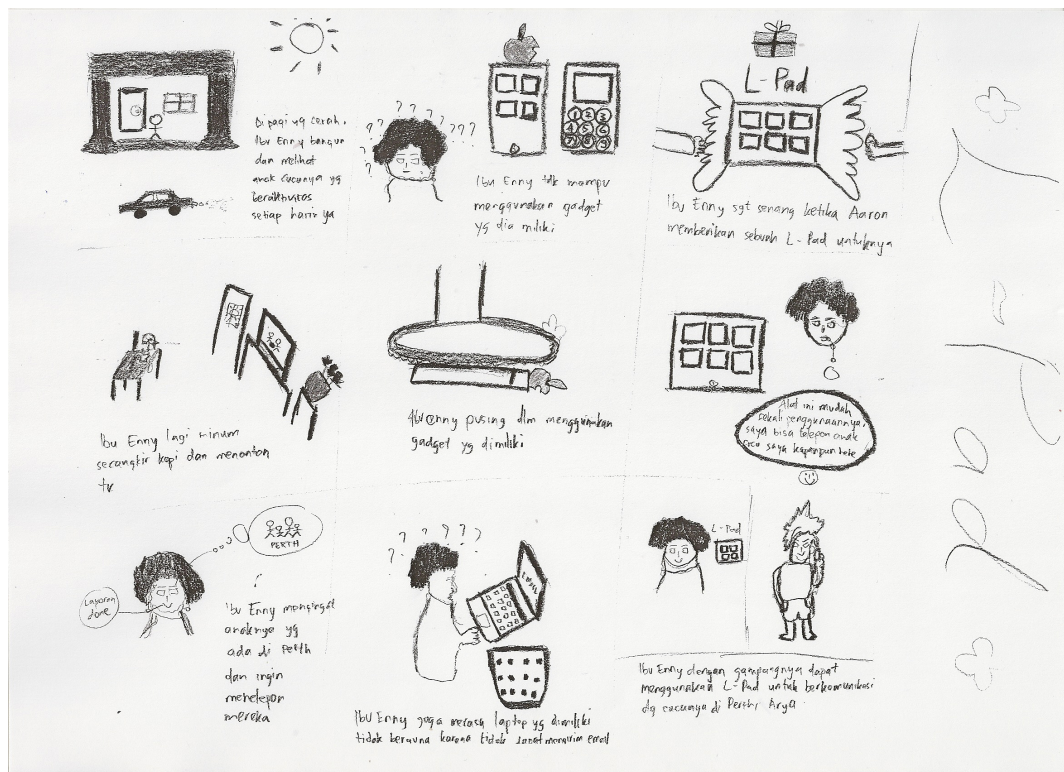 Di pagi yg cerah,
Ibu Enny bangun
dan melihat
anak cucunya yg
beraktivitas
setiap harinya
Ibu Enny lagi minum
secangkir kopi dan menonton
tv
PERTH
Ibu Enny mengingat
anaknya yg
ada di Perth
dan ingin
menelepon
mereka
? ? ? ? ? ? ? ? ?
1 2 3
4 5 6
7 8 9
Ibu Enny tdk mampu
menggunakan gadget
yg dia miliki
Ibu enny pusing dlm menggunakan
gadget yg dimiliki
? ? ? ? ? ?
Ibu Enny juga merasa laptop yg dimiliki
tidak berguna karena tidak dapat mengirim email
L-Pad
Ibu Enny sgt senang ketika Aaron
memberikan sebuah L-Pad untuknya
Alat ini mudah
sekali penggunaannya,
saya bisa telepon anak
cucu saya kapanpun
L-Pad
Ibu Enny dengan gampangnya dapat
menggunakan L-Pad untuk berkomunikasi
dg cucunya di Perth, Arya.
L-Pad